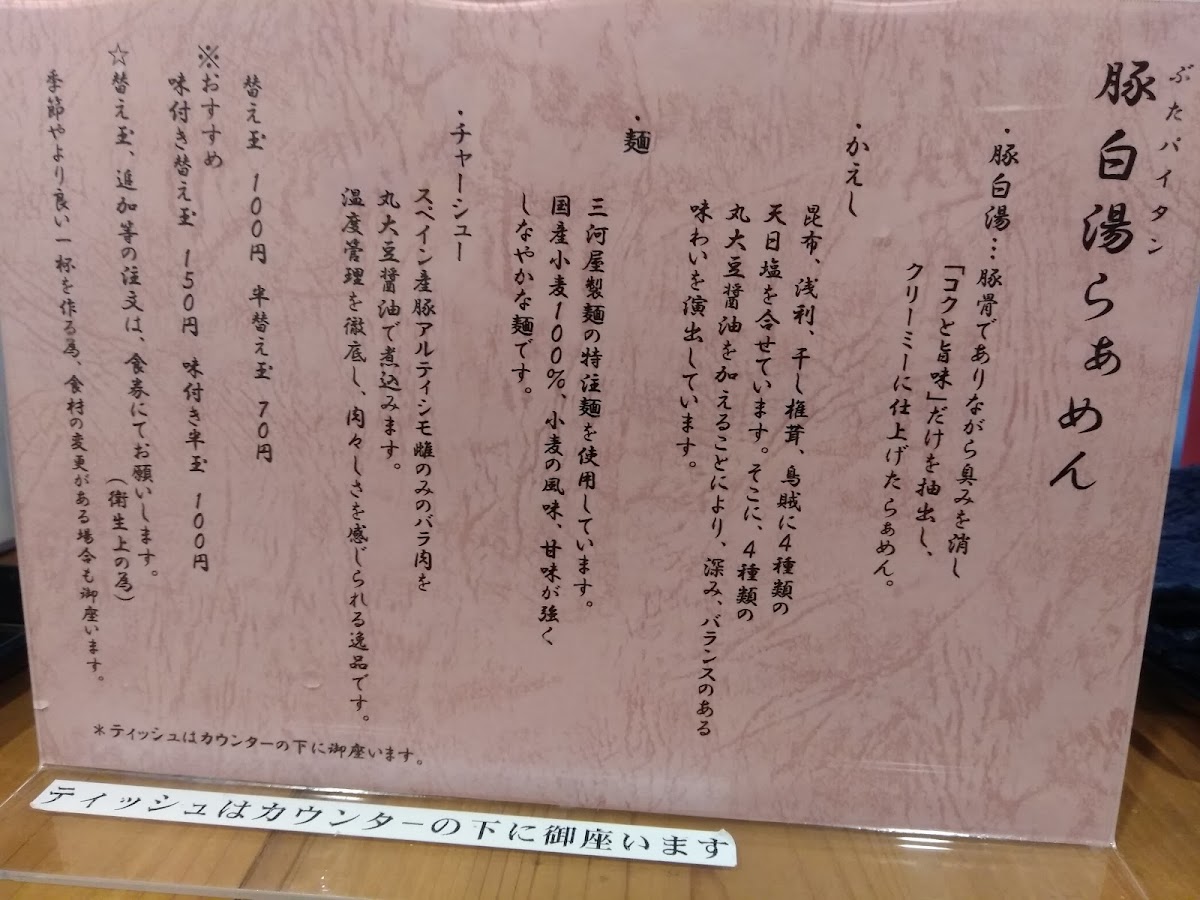 ぶたパイタン
豚白湯らぁめん
・豚白湯…豚骨でありながら臭みを消し
「コクと旨味」だけを抽出し、
クリーミーに仕上げたらぁめん。
・かえし
昆布、浅利、干し椎茸、烏賊に4種類の
天日塩を合せています。そこに、4種類の
丸大豆醤油を加えることにより、深み、バランスのある
味わいを演出しています。
・麺
三河屋製麺の特注麺を使用しています。
国産小麦100%、小麦の風味、甘味が強く
しなやかな麺です。
・チャーシュー
スペイン産豚アルティシモ雌のみのバラ肉を
丸大豆醤油で煮込みます。
温度管理を徹底し、肉々しさを感じられる逸品です。
替え玉 100円 半替え玉 70円
※おすすめ
味付き替え玉 150円 味付き半玉 100円
☆替え玉、追加等の注文は、食券にてお願いします。
(衛生上の為)
季節やより良い一杯を作る為、食材の変更がある場合も御座います。
*ティッシュはカウンターの下に御座います。
ティッシュはカウンターの下に御座います